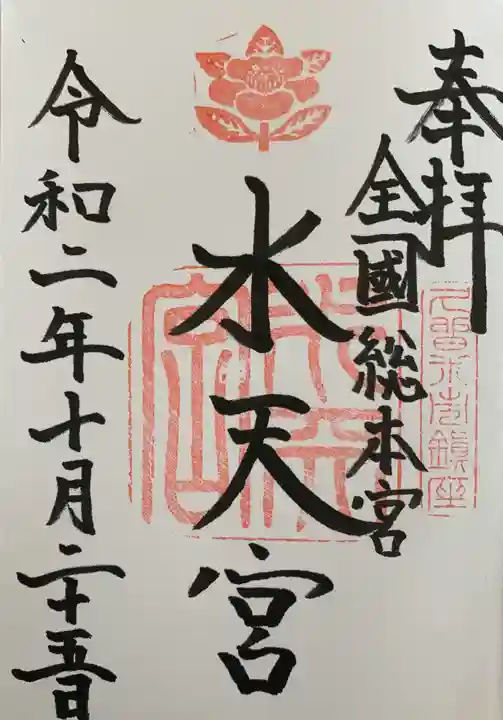 奉拝
久留米市鎮座
全國総本宮
水天宮
令和二年十月二十五日